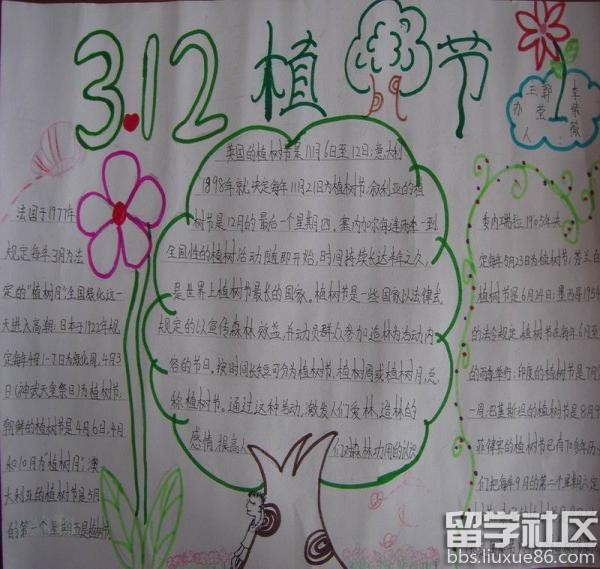 3.12 植树节
王
办
人
郭
莹
李
紫
薇
法国于1977年
规定每年3月为法
定的"植树月"全国绿化这一
天进入高潮:日本于1922年规
定每年4月1-7日为绿化周,4月3
日(神武天皇祭日)为植树节
朝鲜的植树节是4月6日,4月
和10月为"植树月",澳
大利亚的植树节是5月
的第一个星期五是植树节
英国的植树节是11月6日至12日;意大利
1898年就决定每年11月21日为植树节.叙利亚的植
树节是12月的最后一个星期四。塞内加尔每逢雨季一到
全国性的植树活动随即开始,时间持续长达半年之久,
是世界上植树节最长的国家。植树节是一些国家以法律式
规定的以宣传森林效益,并动员群众参加造林为活动内
容的节日。按时间长短可分为植树节,植树周或植树月,总
称植树节。通过这种活动,激发人们爱林、造林的
感情,提高人们对森林功用的认识
委内瑞拉1905年决
定每年5月23日为植树节,芬兰的
植树节是6月24日,墨西哥1954
的法令规定,植树节是每年6月至
的雨季举行;印度的植树节是7月
一周,巴基斯坦的植树节是8月9
菲律宾的植树节已有70多年历
们把每年9月的第二个星期六定
留学社区
bbs.liuxue86.com